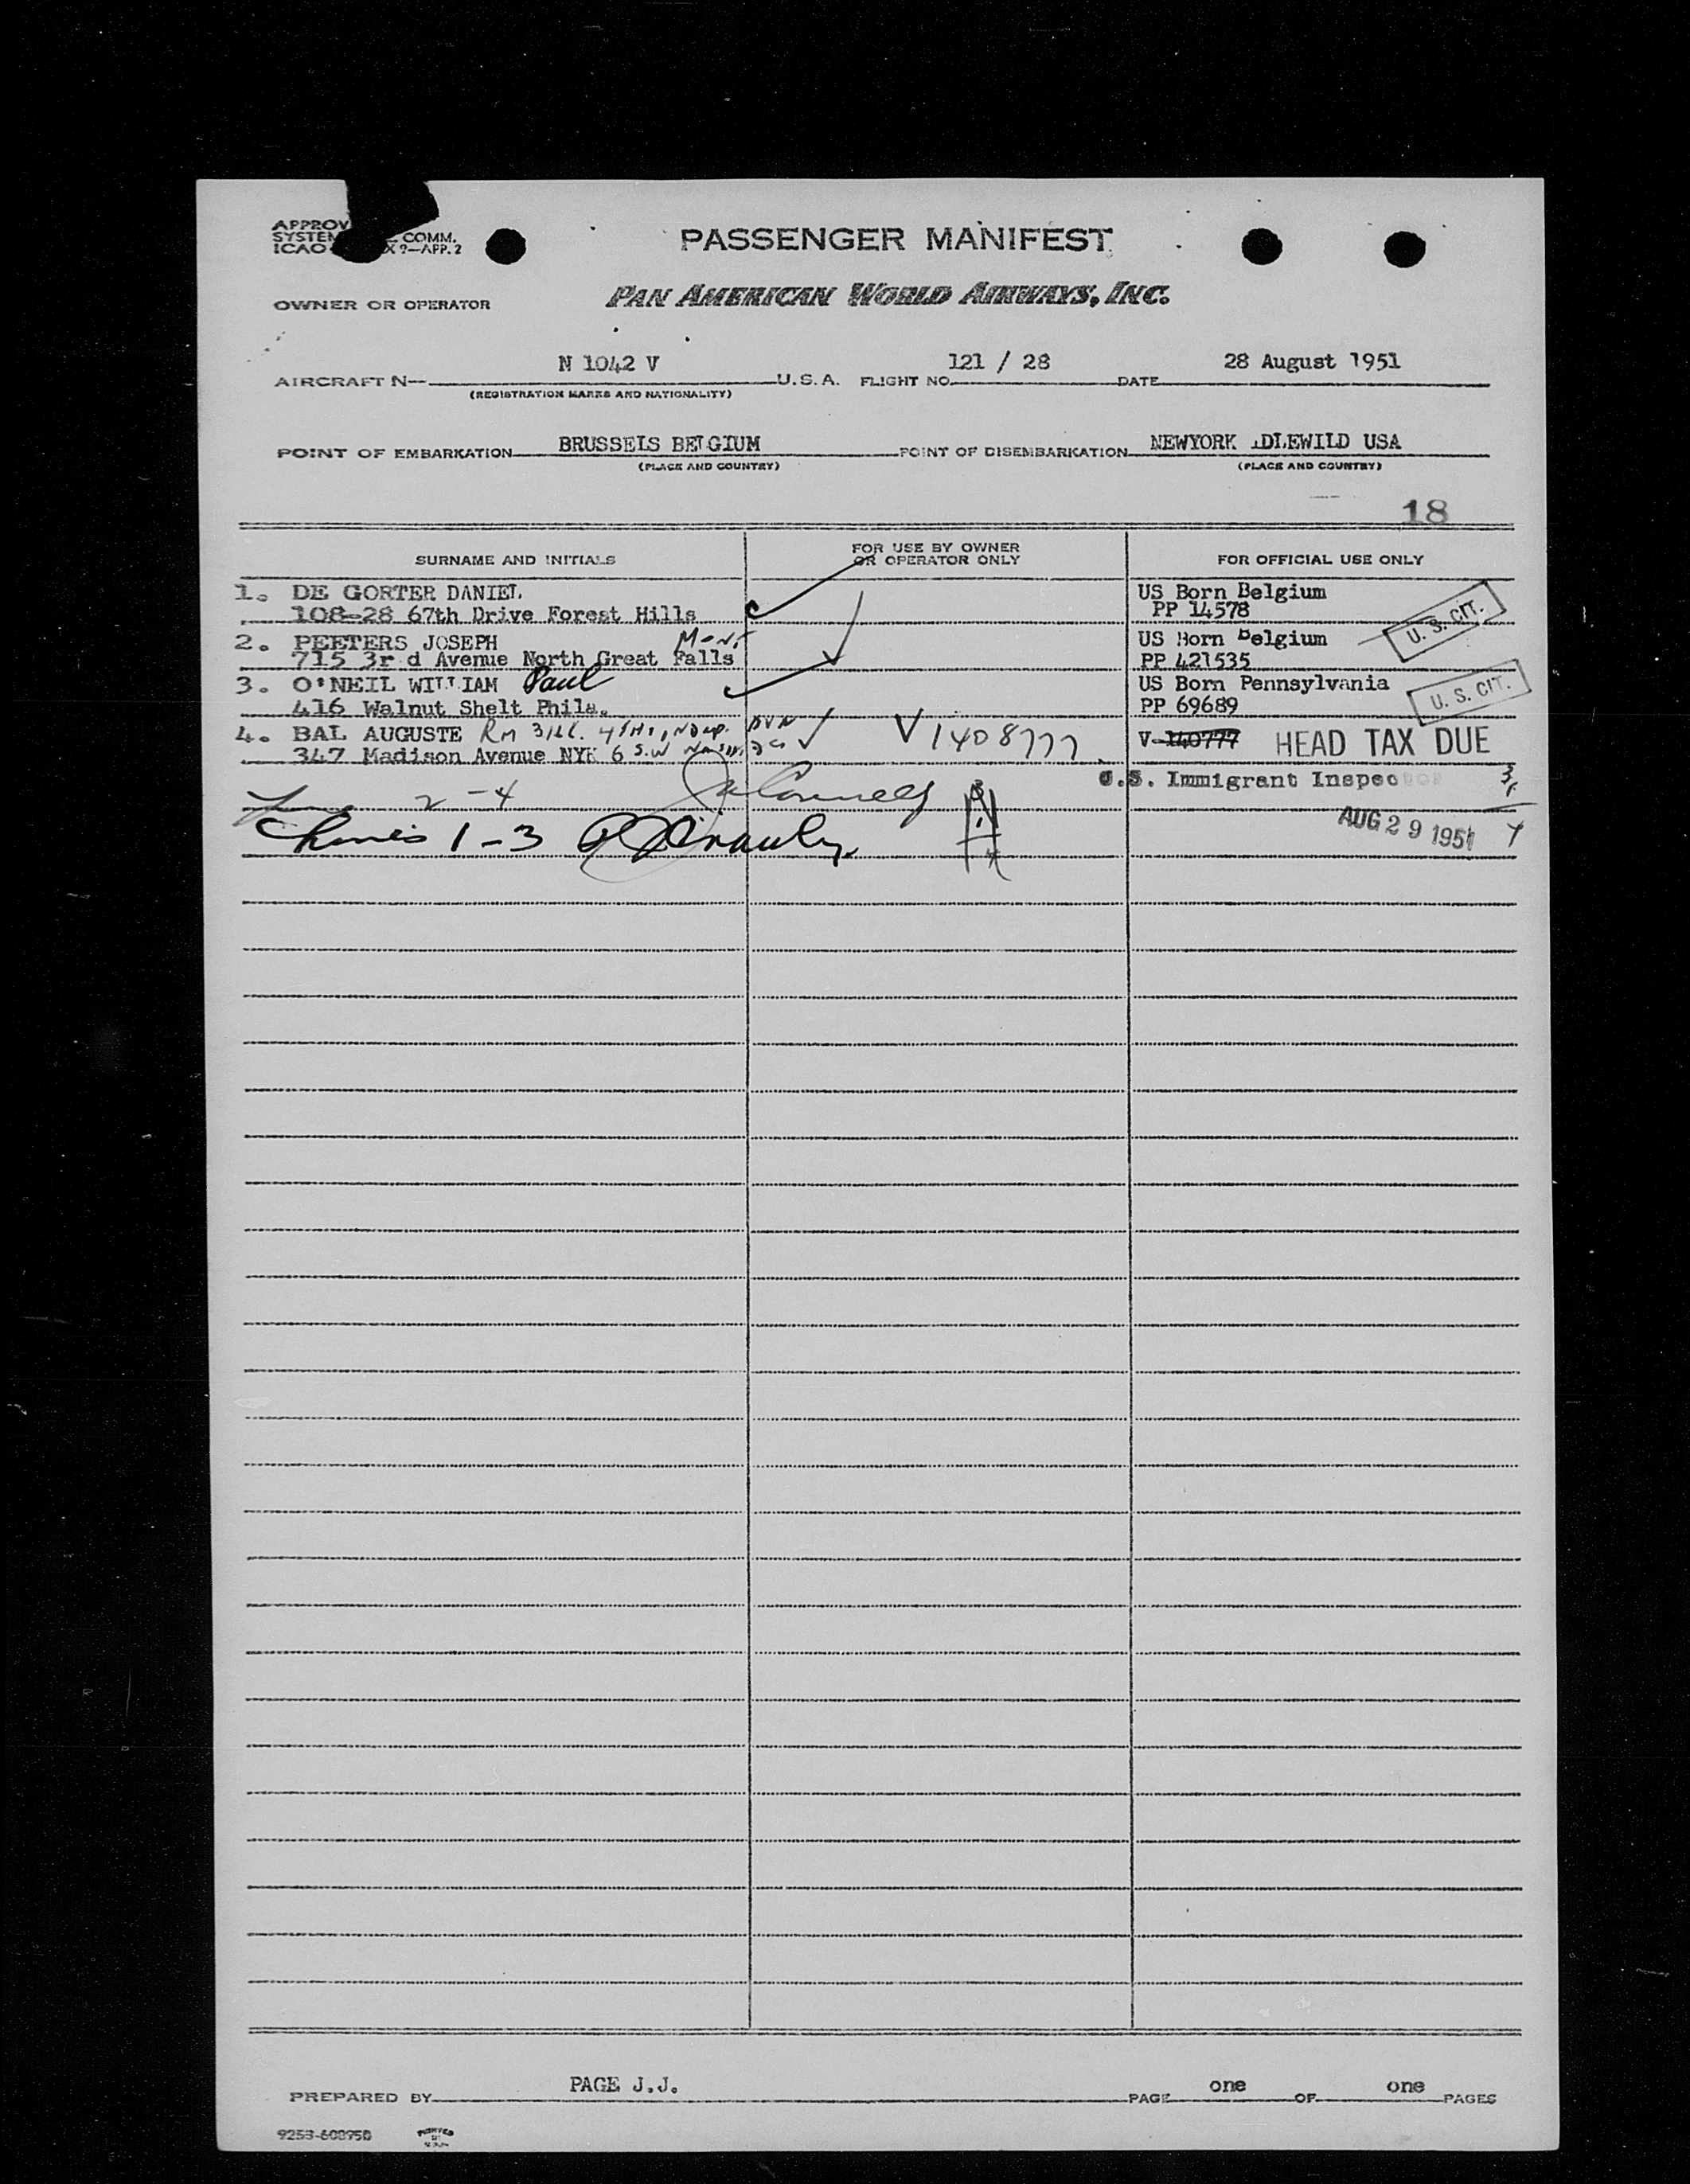 APPROV
SYSTEM COMM.
ICAO X 9—APP. 2
PASSENGER MANIFEST
OWNER OR OPERATOR PAN AMERICAN WORLD AIRWAYS, INC.
AIRCRAFT N— N 1042 V U.S.A. FLIGHT NO. 121 / 28 DATE 28 August 1951
(REGISTRATION MARKS AND NATIONALITY)
POINT OF EMBARKATION BRUSSELS BELGIUM POINT OF DISEMBARKATION NEWYORK IDLEWILD USA
(PLACE AND COUNTRY) (PLACE AND COUNTRY)
18
SURNAME AND INITIALS FOR USE BY OWNER OR OPERATOR ONLY FOR OFFICIAL USE ONLY
1. DE GORTER DANIEL US Born Belgium
108-28 67th Drive Forest Hills PP 14578 U. S. CIT.
2. PEETERS JOSEPH Mont US Born Belgium
715 3r d Avenue North Great Falls PP 421535
3. O'NEIL WILLIAM Paul US Born Pennsylvania
416 Walnut Shelt Phila. PP 69689 U. S. CIT.
4. BAL AUGUSTE Rm V 1408777 V-140777 HEAD TAX DUE
347 Madison Avenue NYK 6 S.W
2-4 U.S. Immigrant Inspector
1-3 AUG 29 1951
PREPARED BY PAGE J.J. PAGE one OF one PAGES